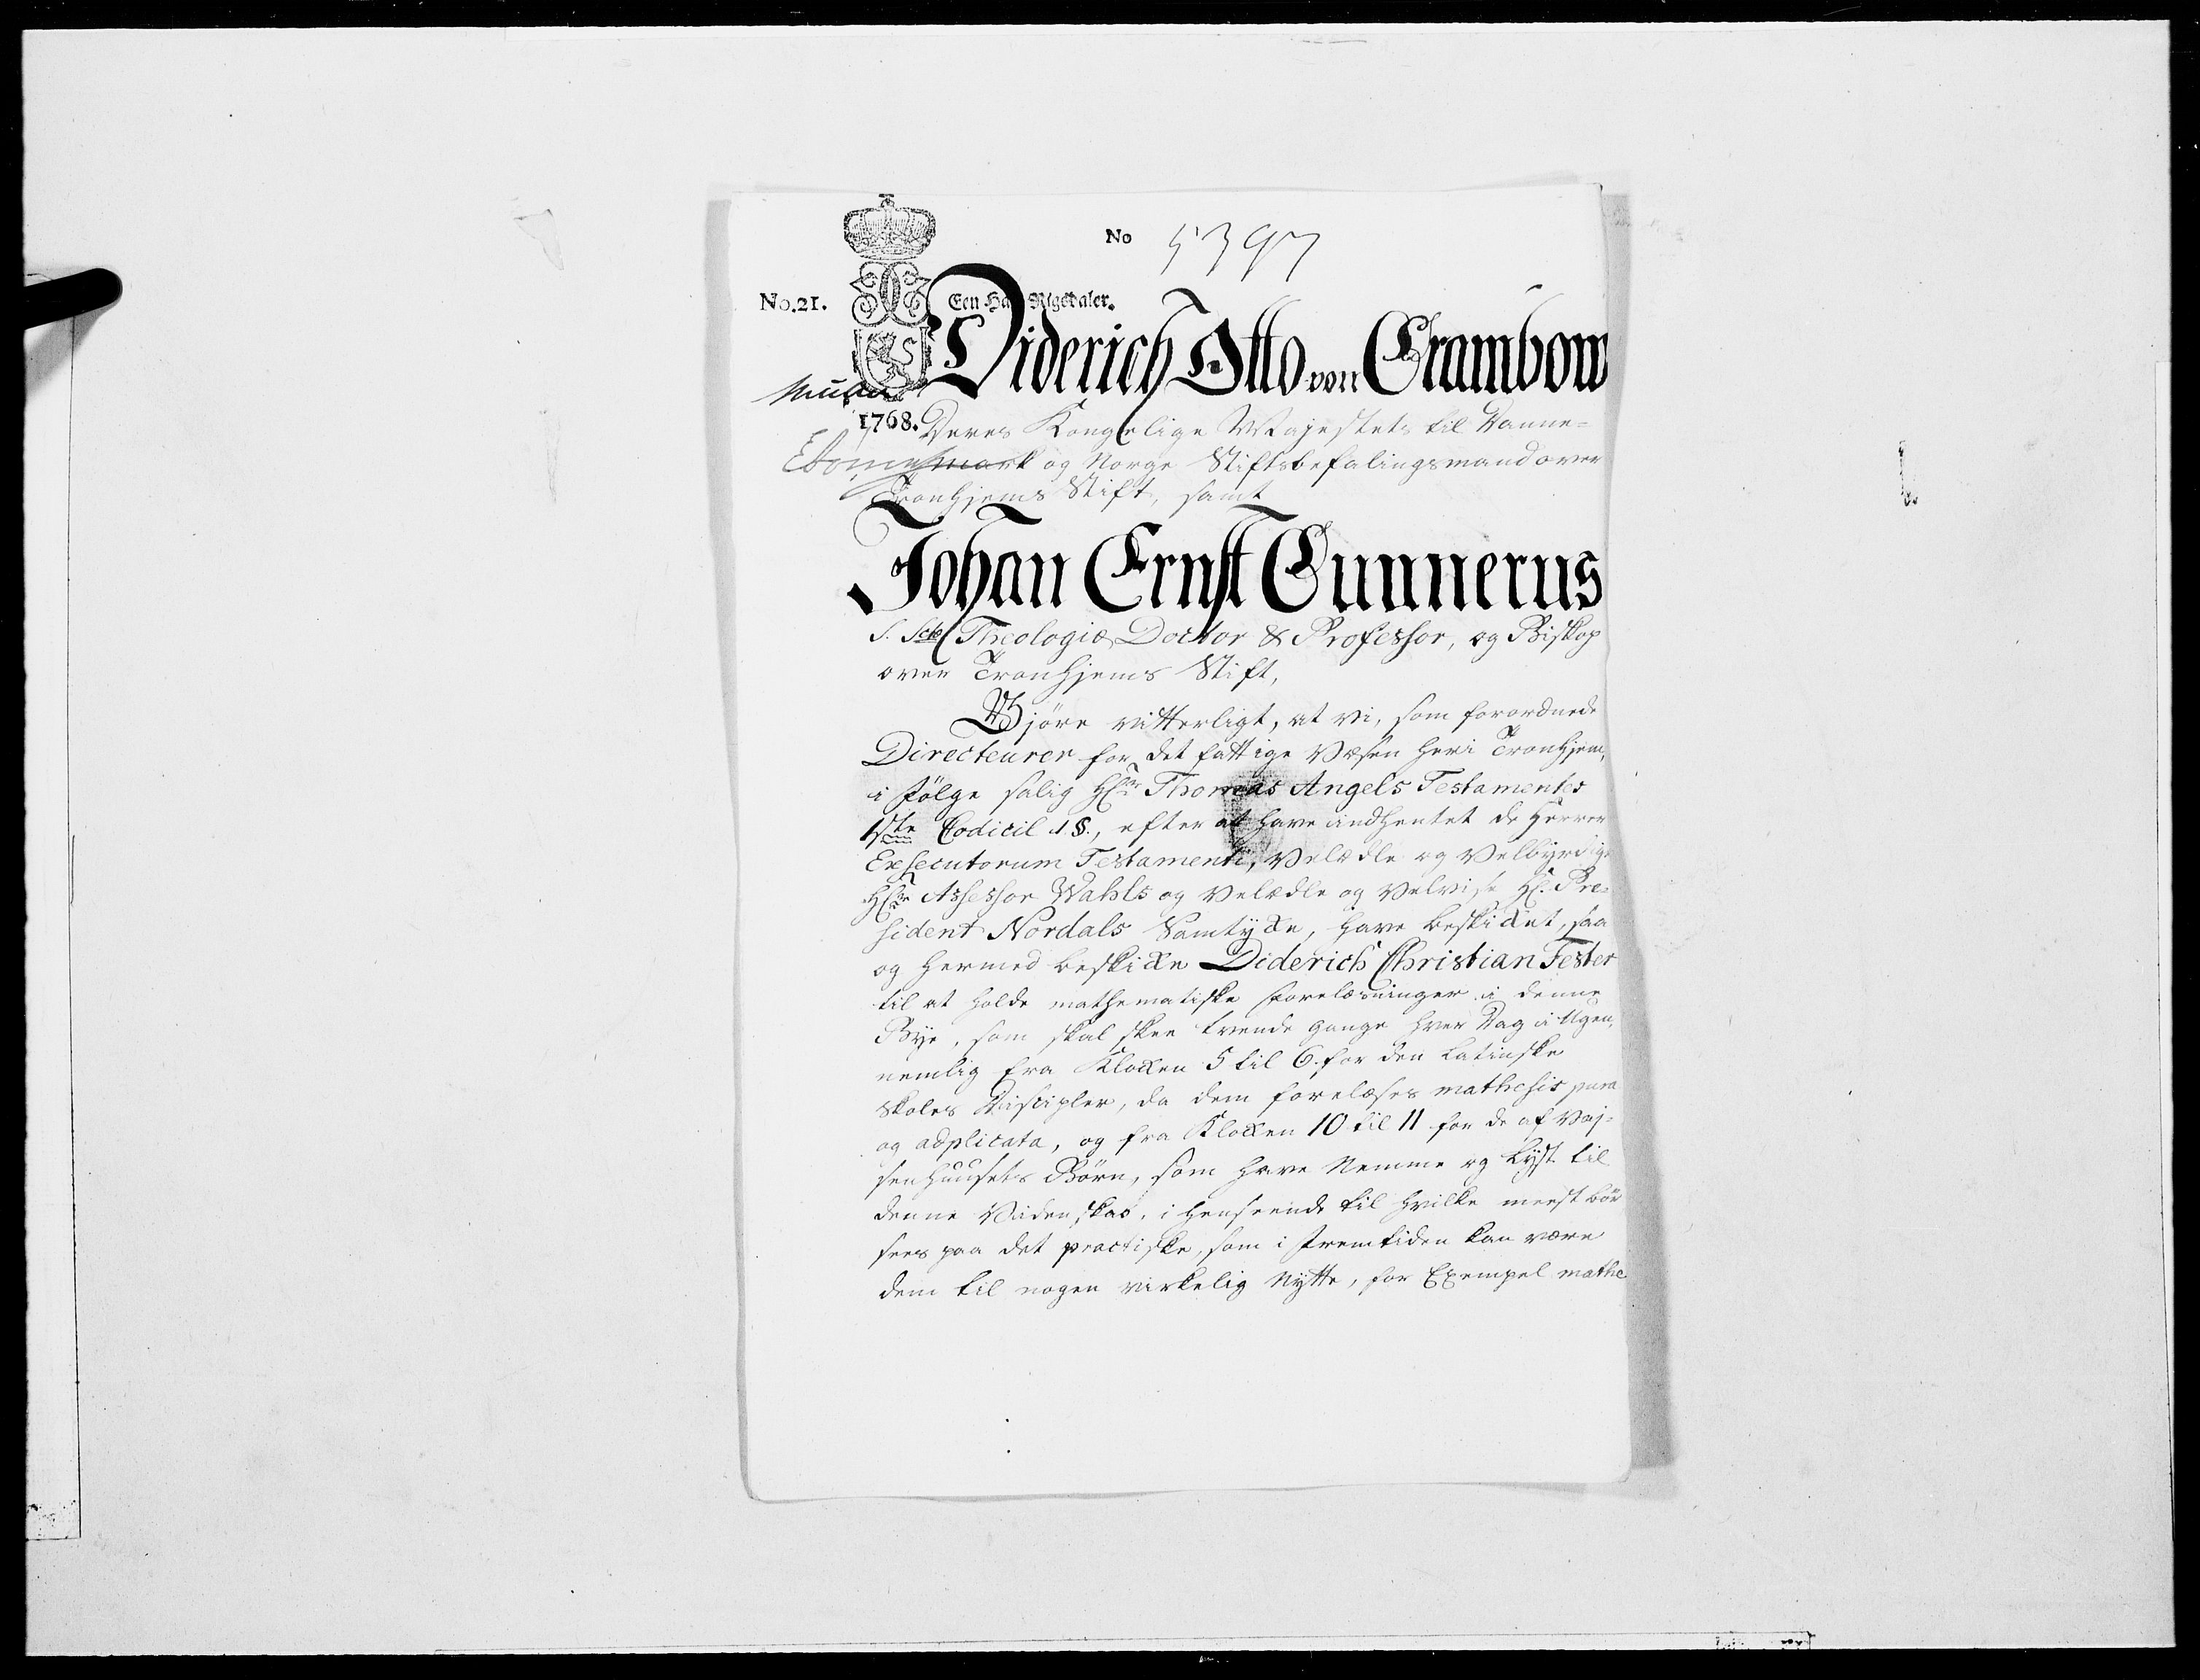 No 5397
No. 21.
Een Halv Rigsdaler.
Diderich Otto von Grambow
1768.
Deres Kongelige Majestets til Danne-
mark og Norge Stiftsbefalingsmand over
Tronhjems Stift, samt
Johan Ernst Gunnerus
S. Sctæ Theologiæ Doctor & Professor, og Biskop
over Tronhjems Stift,
Gjöre vitterligt, at vi, som forordnede
Directeurer for det fattige Væsen her i Tronhjem,
i Fölge salig Hr Thomas Angels Testamentes
1ste Codicil 1 §., efter at have indhentet de Herrer
Exsecutorum Testamenti, Velædle og Velbyrdige
Hr Assessor Wahls og Velædle og Velvise Hr. Pre-
sident Nordals Samtykke, have beskikket, saa
og hermed beskikke Diderich Christian Fester
til at holde mathematiske Forelæsninger i denne
Bye, som skal skee tvende gange hver Dag i Ugen,
nemlig fra Klokken 5 til 6. for den Latinske
Skoles Discipler, da dem forelæses mathesis pura
og adplicata, og fra Klokken 10 til 11 for de af Vaj-
senhuusets Börn, som have Nemme og Lyst til
denne Videnskab, i henseende til hvilke meest bör
sees paa det practiske, som i Fremtiden kan være
dem til nogen virkelig Nytte, for Exempel mathe